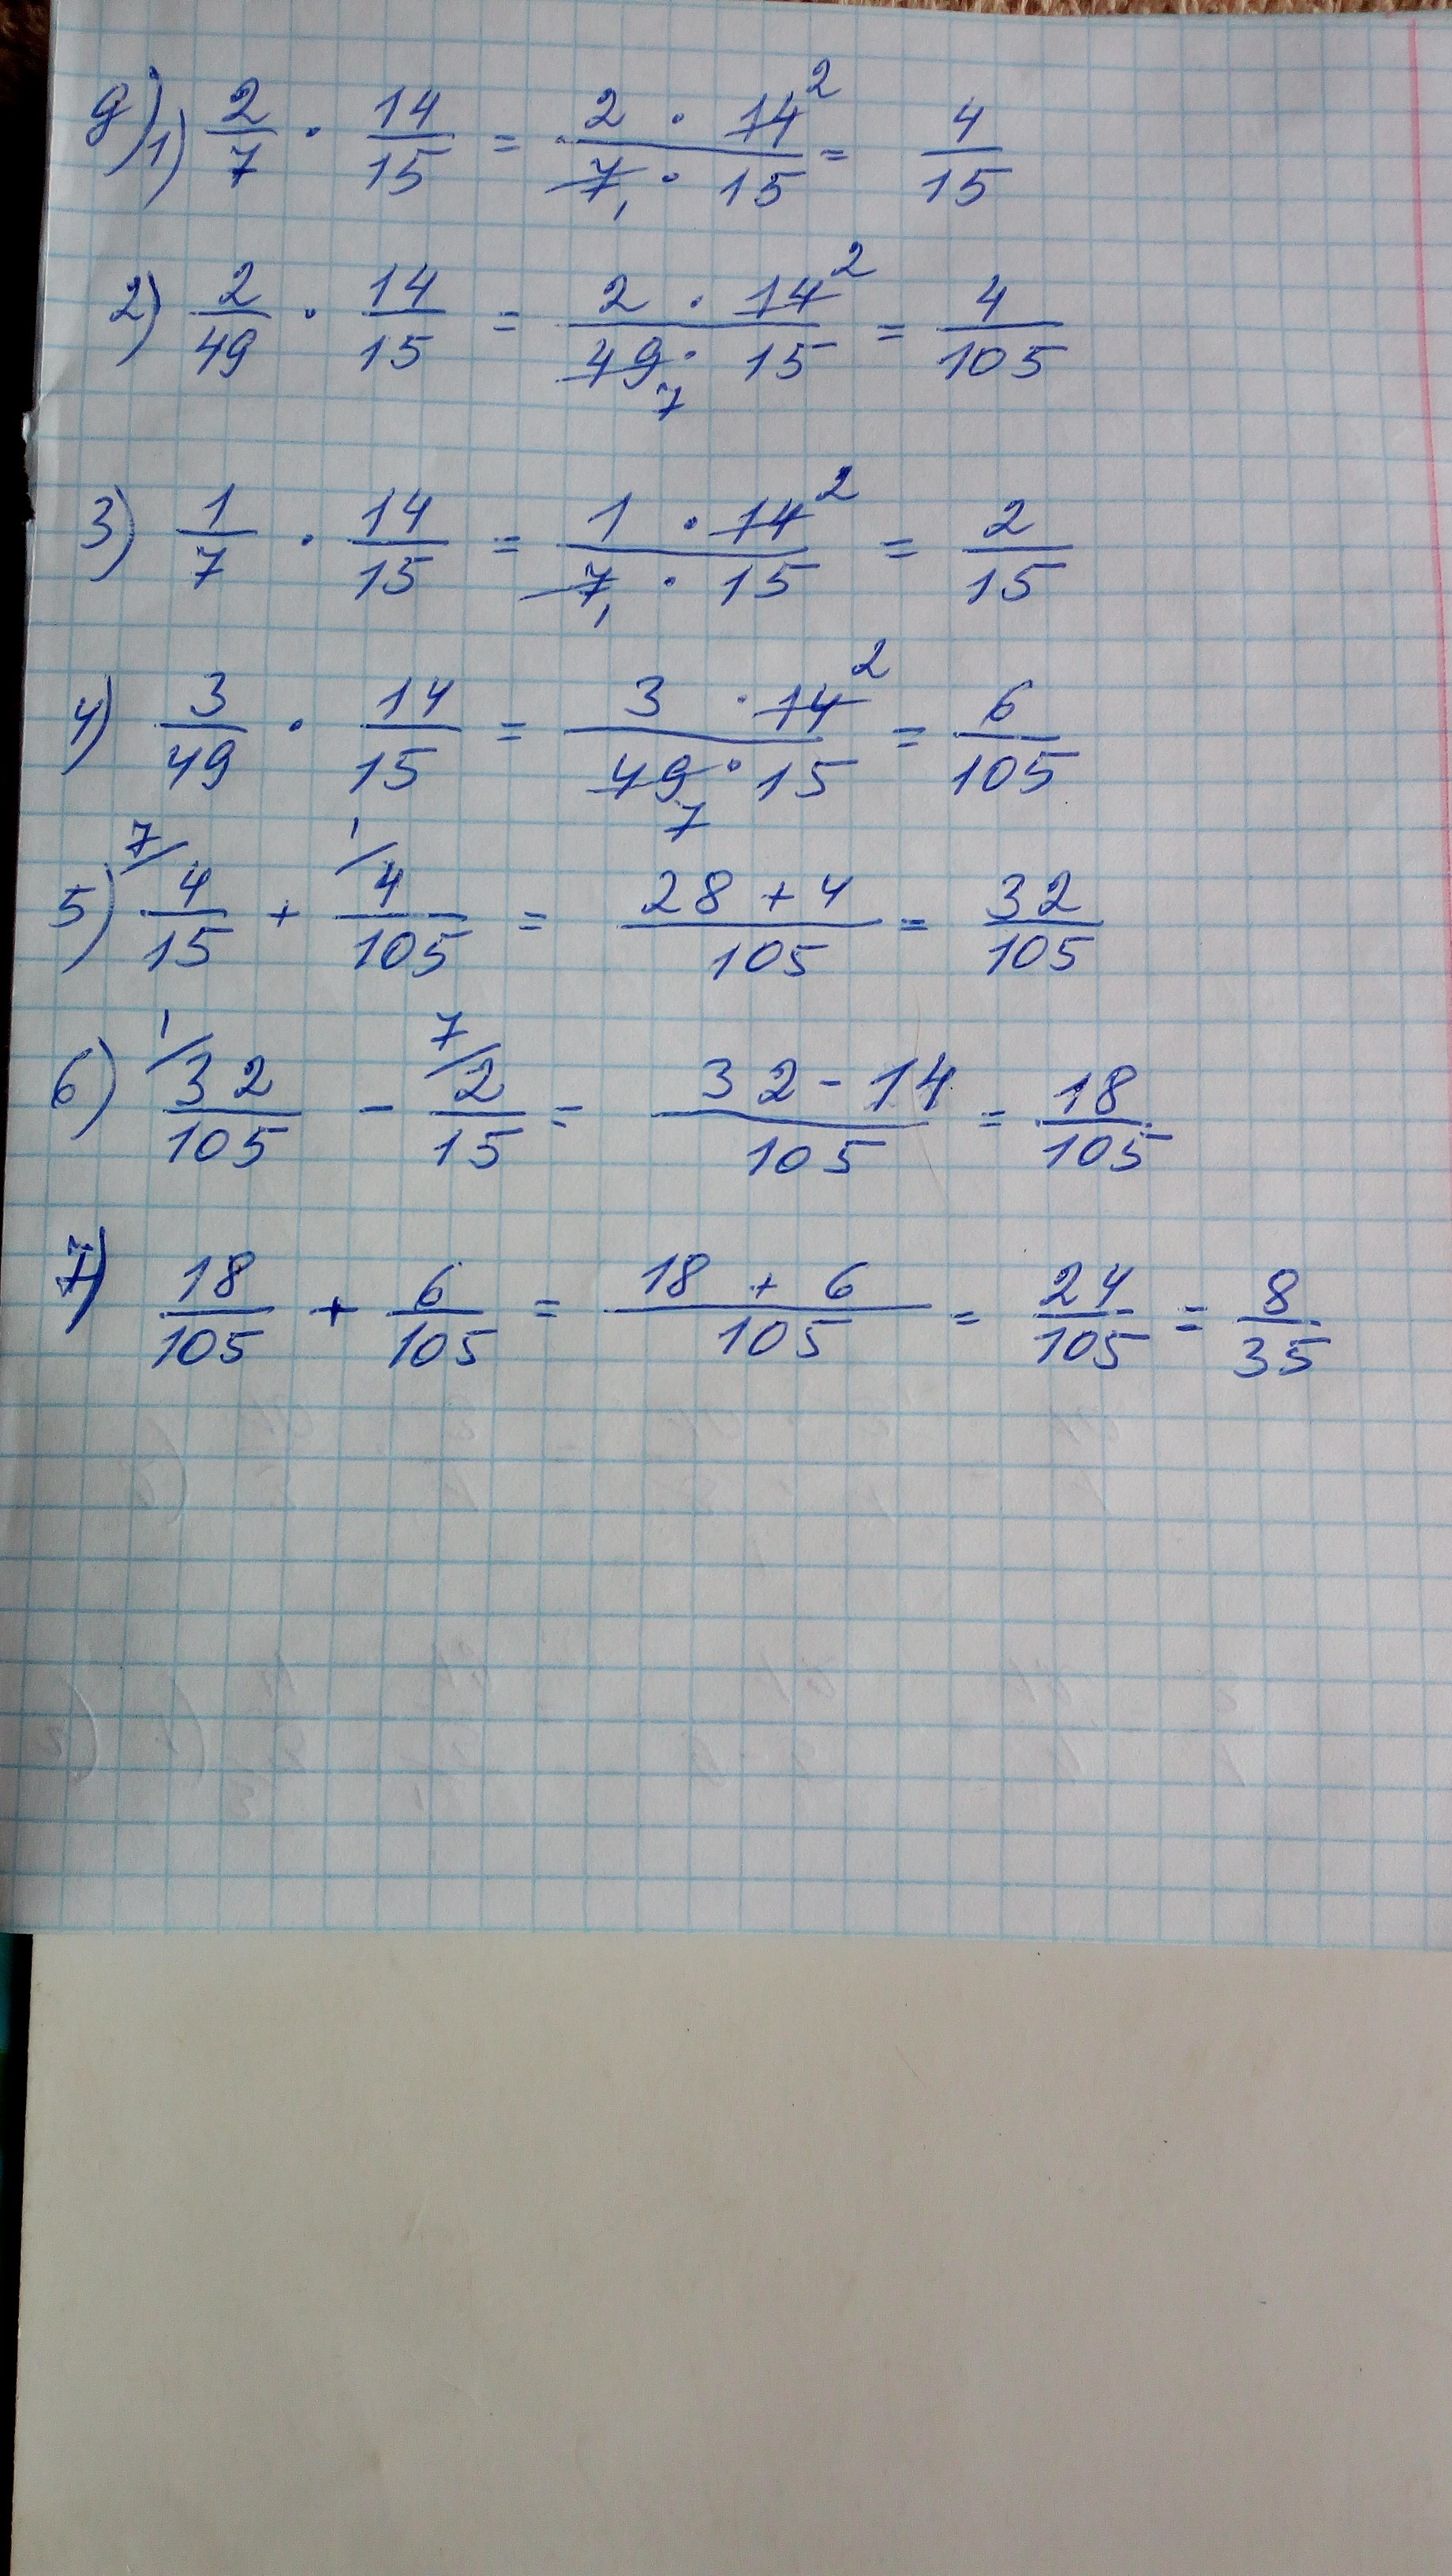 д) 1) 2/7 · 14/15 = 2 · 14²/7₁ · 15 = 4/15
2) 2/49 · 14/15 = 2 · 14²/49₇ · 15 = 4/105
3) 1/7 · 14/15 = 1 · 14²/7₁ · 15 = 2/15
4) 3/49 · 14/15 = 3 · 14²/49₇ · 15 = 6/105
5) ⁷/4/15 + ¹/4/105 = 28 + 4/105 = 32/105
6) ¹/32/105 - ⁷/2/15 = 32 - 14/105 = 18/105
7) 18/105 + 6/105 = 18 + 6/105 = 24/105 = 8/35